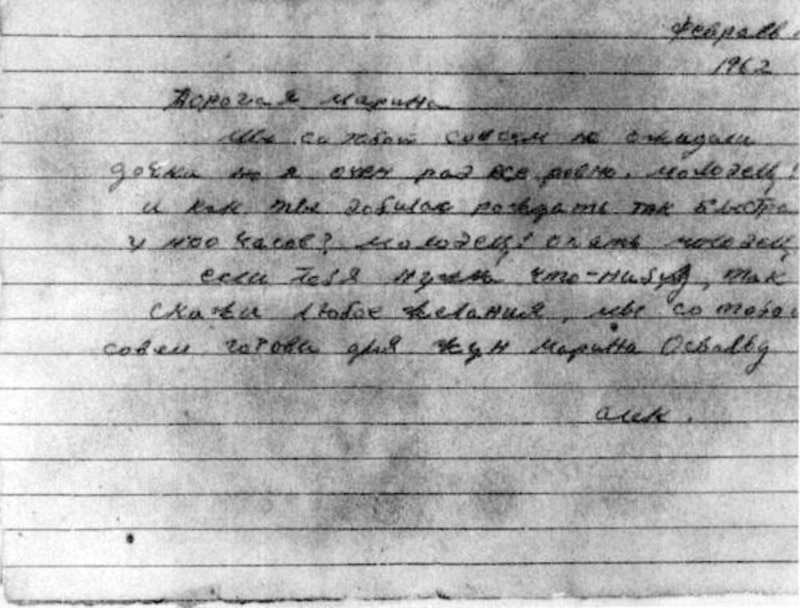 Февраль
1962
Дорогая Марина
Мы с тобой совсем не ожидали
дочки но я очен рад все ровно. молодец!
и как ты рождать так быстра
часов? молодец! опять молодец
если тебя нужен что-нибуд, так
скажи любое желания, мы со тобой
совем готови для жун Марина Освальд
Алик.